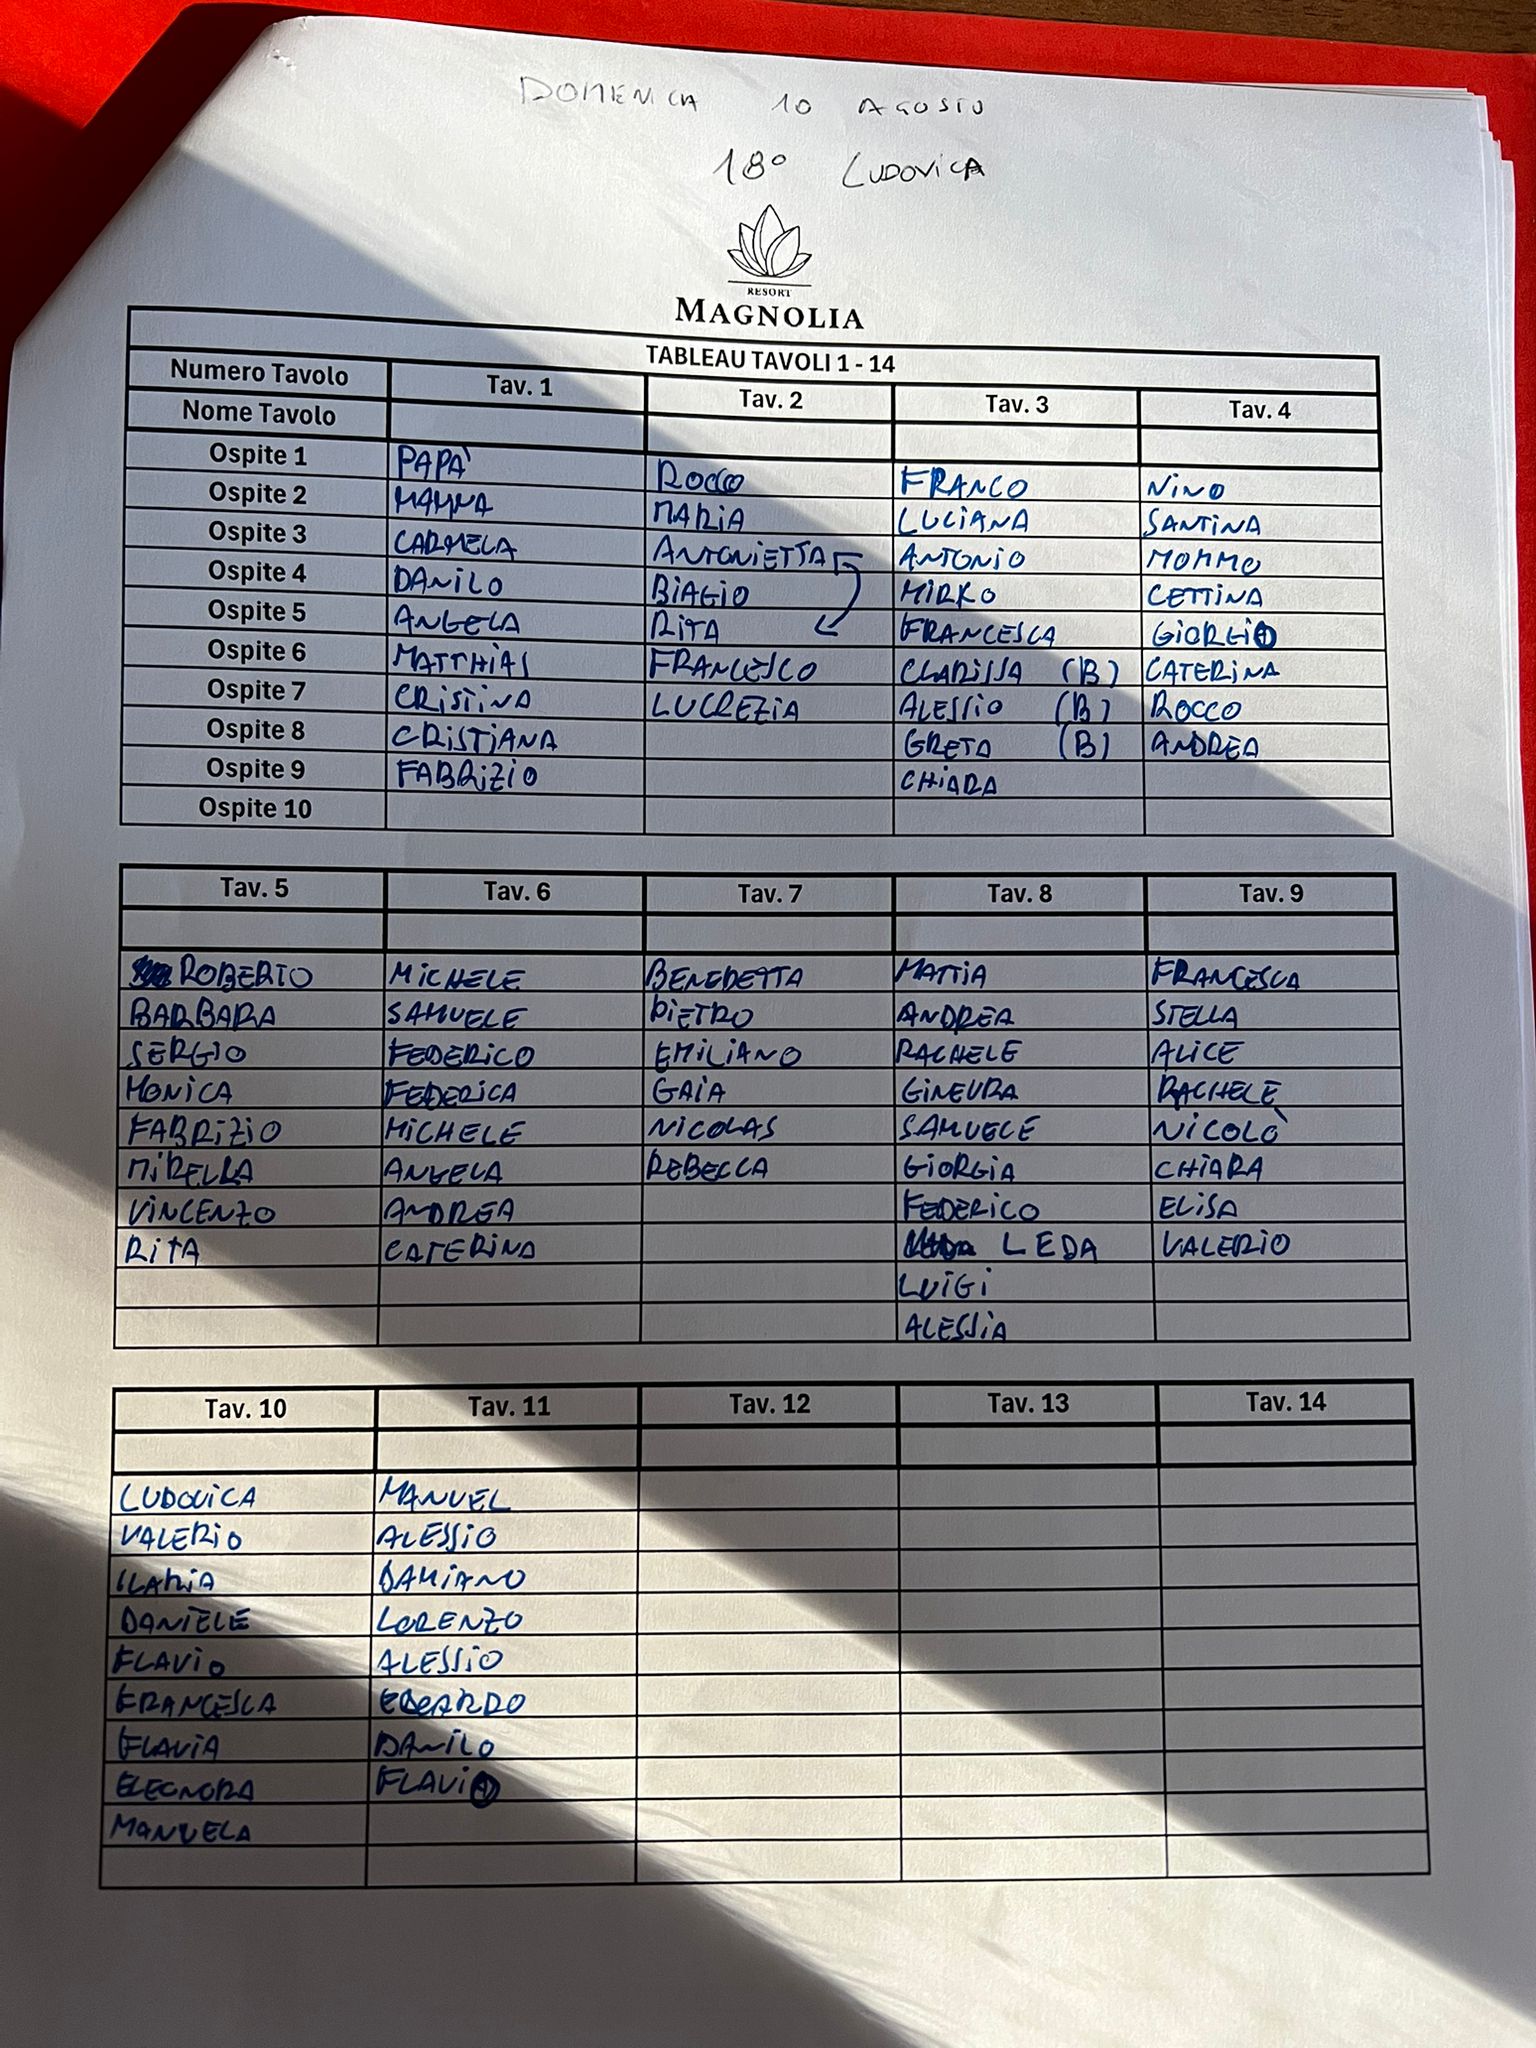 DOMENICA 10 AGOSTO
18° LUDOVICA
RESORT
MAGNOLIA
TABLEAU TAVOLI 1 - 14
Numero Tavolo Tav. 1 Tav. 2 Tav. 3 Tav. 4
Nome Tavolo
Ospite 1 PAPÀ ROCCO FRANCO NINO
Ospite 2 MAMMA MARIA LUCIANA SANTINA
Ospite 3 CARMELA ANTONIETTA ANTONIO MOMMO
Ospite 4 DANILO BIAGIO MIRKO CETTINA
Ospite 5 ANGELA RITA FRANCESCA GIORGIO
Ospite 6 MATTHIAS FRANCESCO CLARISSA (B) CATERINA
Ospite 7 CRISTINA LUCREZIA ALESSIO (B) ROCCO
Ospite 8 CRISTIANA GRETA (B) ANDREA
Ospite 9 FABRIZIO CHIARA
Ospite 10
Tav. 5 Tav. 6 Tav. 7 Tav. 8 Tav. 9
ROBERTO MICHELE BENEDETTA MATTIA FRANCESCA
BARBARA SAMUELE PIETRO ANDREA STELLA
SERGIO FEDERICO EMILIANO RACHELE ALICE
MONICA FEDERICA GAIA GINEVRA RACHELE
FABRIZIO MICHELE NICOLAS SAMUELE NICOLÒ
MIRELLA ANGELA REBECCA GIORGIA CHIARA
VINCENZO ANDREA FEDERICO ELISA
RITA CATERINA LEDA VALERIO
LUIGI
ALESSIA
Tav. 10 Tav. 11 Tav. 12 Tav. 13 Tav. 14
LUDOVICA MANUEL
VALERIO ALESSIO
ILARIA DAMIANO
DANIELE LORENZO
FLAVIO ALESSIO
FRANCESCA EDOARDO
FLAVIA DANILO
ELEONORA FLAVIO
MANUELA